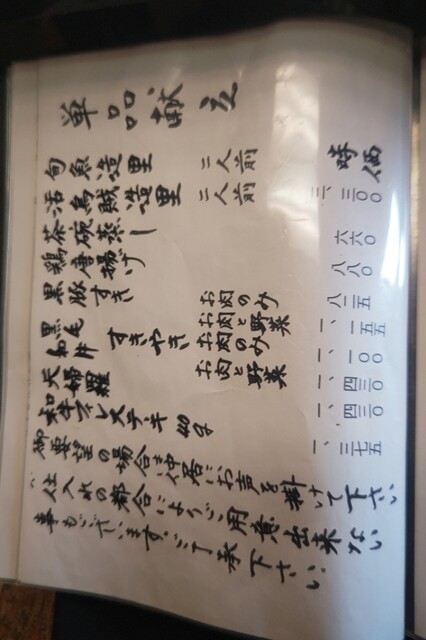 単品献立
旬魚造里 二人前 時価
活烏賊造里 二人前 三、三〇〇
茶碗蒸し 六六〇
鶏唐揚げ 八八〇
黒豚すき お肉のみ 八二五
お肉と野菜 一、一五五
黒毛和牛 すきやき お肉のみ 一、一〇〇
お肉と野菜 一、四三〇
天婦羅 一、四三〇
和牛フィレステーキ 40g 一、三七五
御要望の場合は仲居にお声を掛けて下さい
仕入れの都合によりご用意出来ない
事もございます。ご了承下さい。